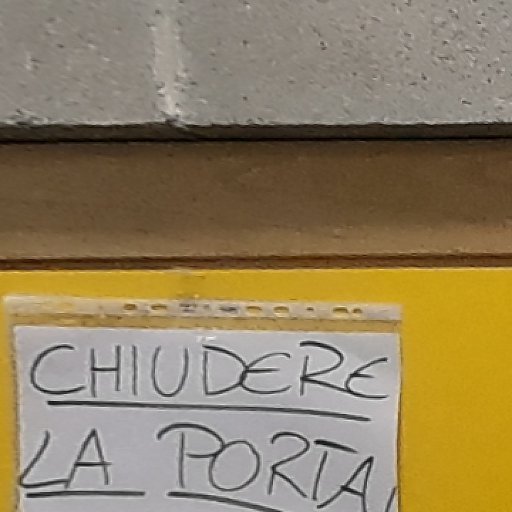 CHIUDERE
LA PORTA